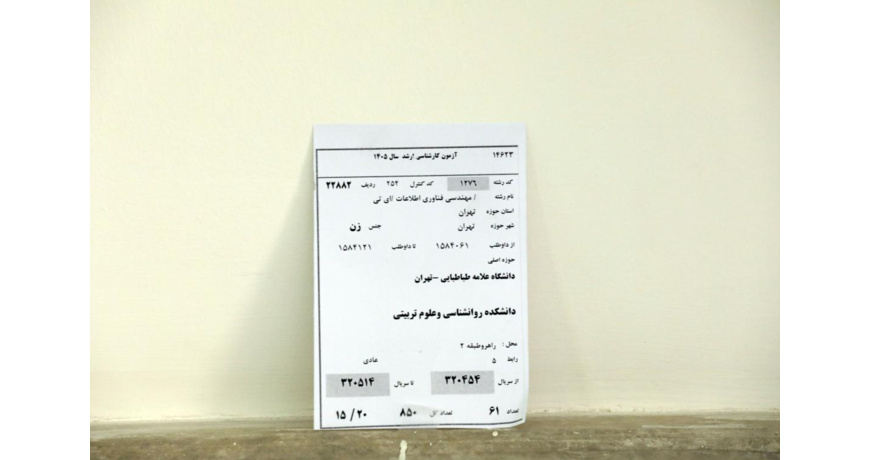 ۱۴۶۲۳ آزمون کارشناسی ارشد سال ۱۴۰۵
کد رشته ۱۲۷۶ کد کنترل ۲۵۴ ردیف ۲۲۸۸۲
نام رشته / مهندسی فناوری اطلاعات آای تی
استان حوزه تهران
شهر حوزه تهران جنس زن
از داوطلب ۱۵۸۴۰۶۱ تا داوطلب ۱۵۸۴۱۲۱
حوزه اصلی
دانشگاه علامه طباطبایی -تهران
دانشکده روانشناسی وعلوم تربیتی
محل : راهروطبقه ۲
رابط ۵ عادی
از سریال ۳۲۰۴۵۴ تا سریال ۳۲۰۵۱۴
تعداد ۶۱ تعداد کل ۸۵۰ ۱۵ / ۲۰